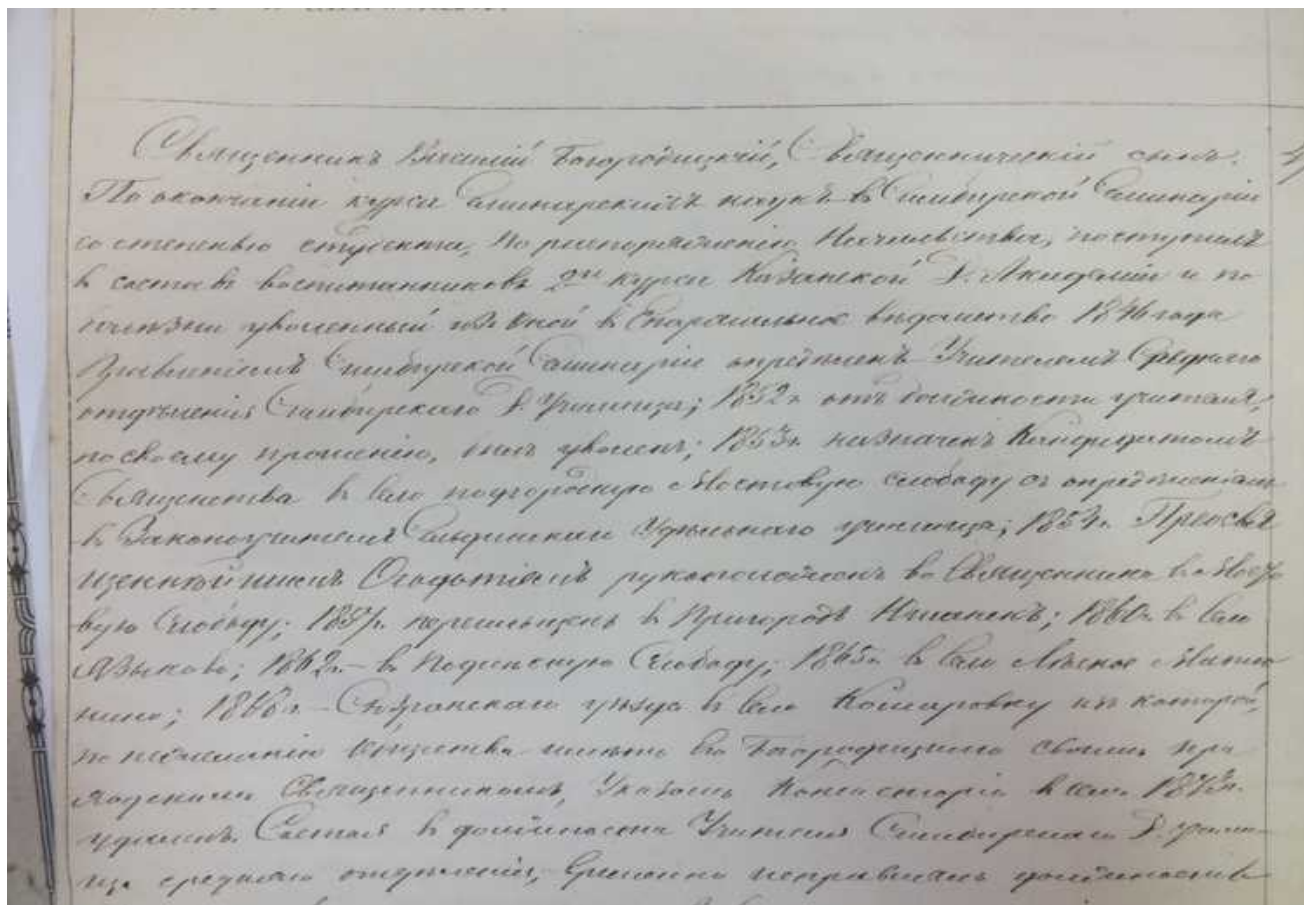 Священникъ Василій Богородицкій, Священническій сынъ.
По окончаніи курса Семинарскихъ наукъ въ Симбирской Семинаріи
со степенью студента, по распоряженію Начальства, поступилъ
въ составъ воспитанниковъ 2го курса Казанской Д. Академіи и по
болѣзни уволенный изъ оной въ Епархіальное вѣдомство 1846 года
Правленіемъ Симбирской Семинаріи опредѣленъ Учителемъ Средняго
отдѣленія Симбирскаго Д. Училища; 1852г. отъ должности учителя,
по своему прошенію, былъ уволенъ; 1853г. назначенъ Кандидатомъ
Священства въ село подгородную Мостовую слободу съ опредѣленіемъ
въ Законоучителя Удѣльнаго училища; 1854г. Преосвя
щеннѣйшимъ Ѳеодотіемъ рукоположенъ во Священника въ Мосто
вую Слободу; 1857г. перемѣщенъ въ Пригородъ; 1860г. въ село
Языково; 1862г. – въ Слободу; 1865г. въ село Лѣсное Матю
нино; 1866г. – Сызранскаго уѣзда въ село Комаровку изъ которой,
по нежеланію имѣть его Богородицкаго своимъ при
ходскимъ Священникомъ, Указомъ Консисторіи въ семъ 1873г.
удаленъ. Состоя въ должности Учителя Симбирскаго Д. учили
ща средняго отдѣленія, временно исправлялъ должность